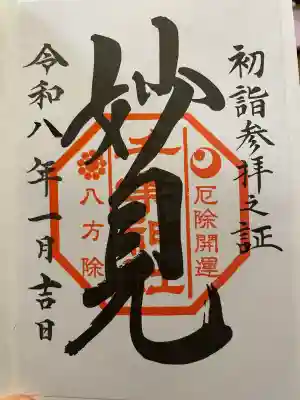 初詣参拝之証
厄除開運
妙見
千葉神社
八方除
令和八年一月吉日